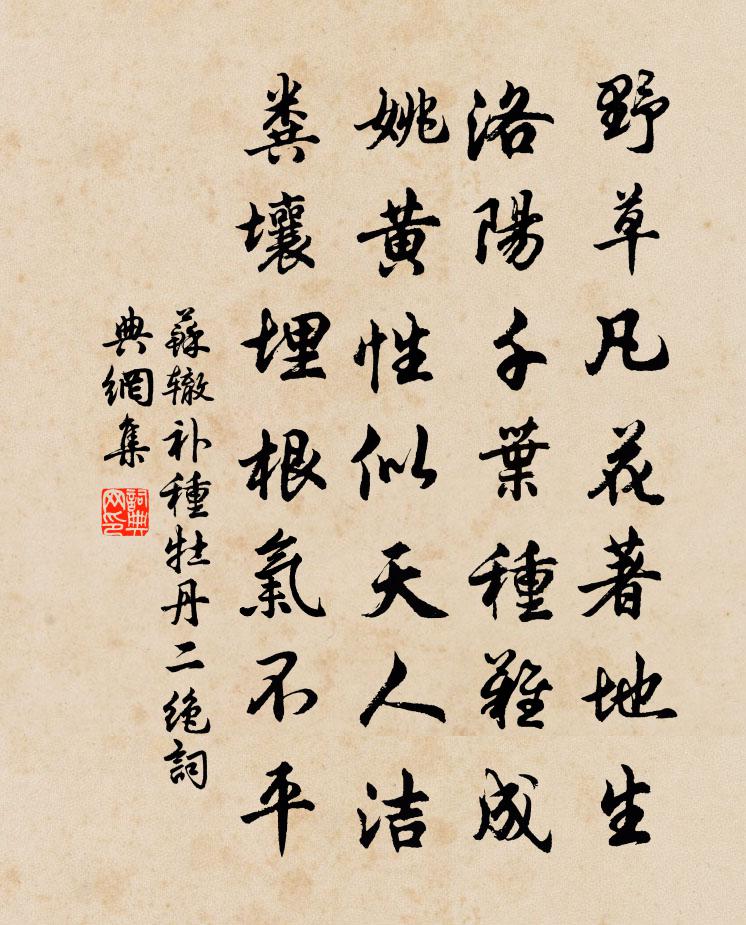 野草凡花著地生
洛陽千葉種難成
姚黄性似天人洁
糞壤埋根氣不平
蘇辙补種牡丹二绝詞
典網集
詞典
网印